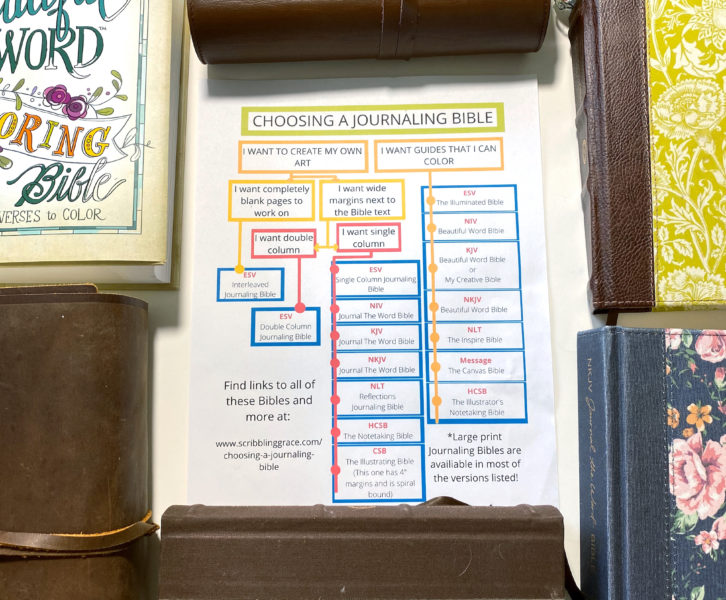 Beautiful
WORD™
COLORING
Bible
VERSES to COLOR
CHOOSING A JOURNALING BIBLE
I WANT TO CREATE MY OWN
ART
I WANT GUIDES THAT I CAN
COLOR
I want completely
blank pages to
work on
I want wide
margins next to
the Bible text
I want double
column
I want single
column
ESV
Interleaved
Journaling Bible
ESV
Double Column
Journaling Bible
ESV
Single Column Journaling
Bible
NIV
Journal The Word Bible
KJV
Journal The Word Bible
NKJV
Journal The Word Bible
NLT
Reflections
Journaling Bible
HCSB
The Notetaking Bible
CSB
The Illustrating Bible
(This one has 4"
margins and is spiral
bound)
ESV
The Illuminated Bible
NIV
Beautiful Word Bible
KJV
Beautiful Word Bible
or
My Creative Bible
NKJV
Beautiful Word Bible
NLT
The Inspire Bible
Message
The Canvas Bible
HCSB
The Illustrator's
Notetaking Bible
Find links to all of
these Bibles and
more at:
www.scribblinggrace.com/
choosing-a-journaling-
bible
*Large print
Journaling Bibles are
availiable in most of
the versions listed!
NKJV Journal the Word BIBLE